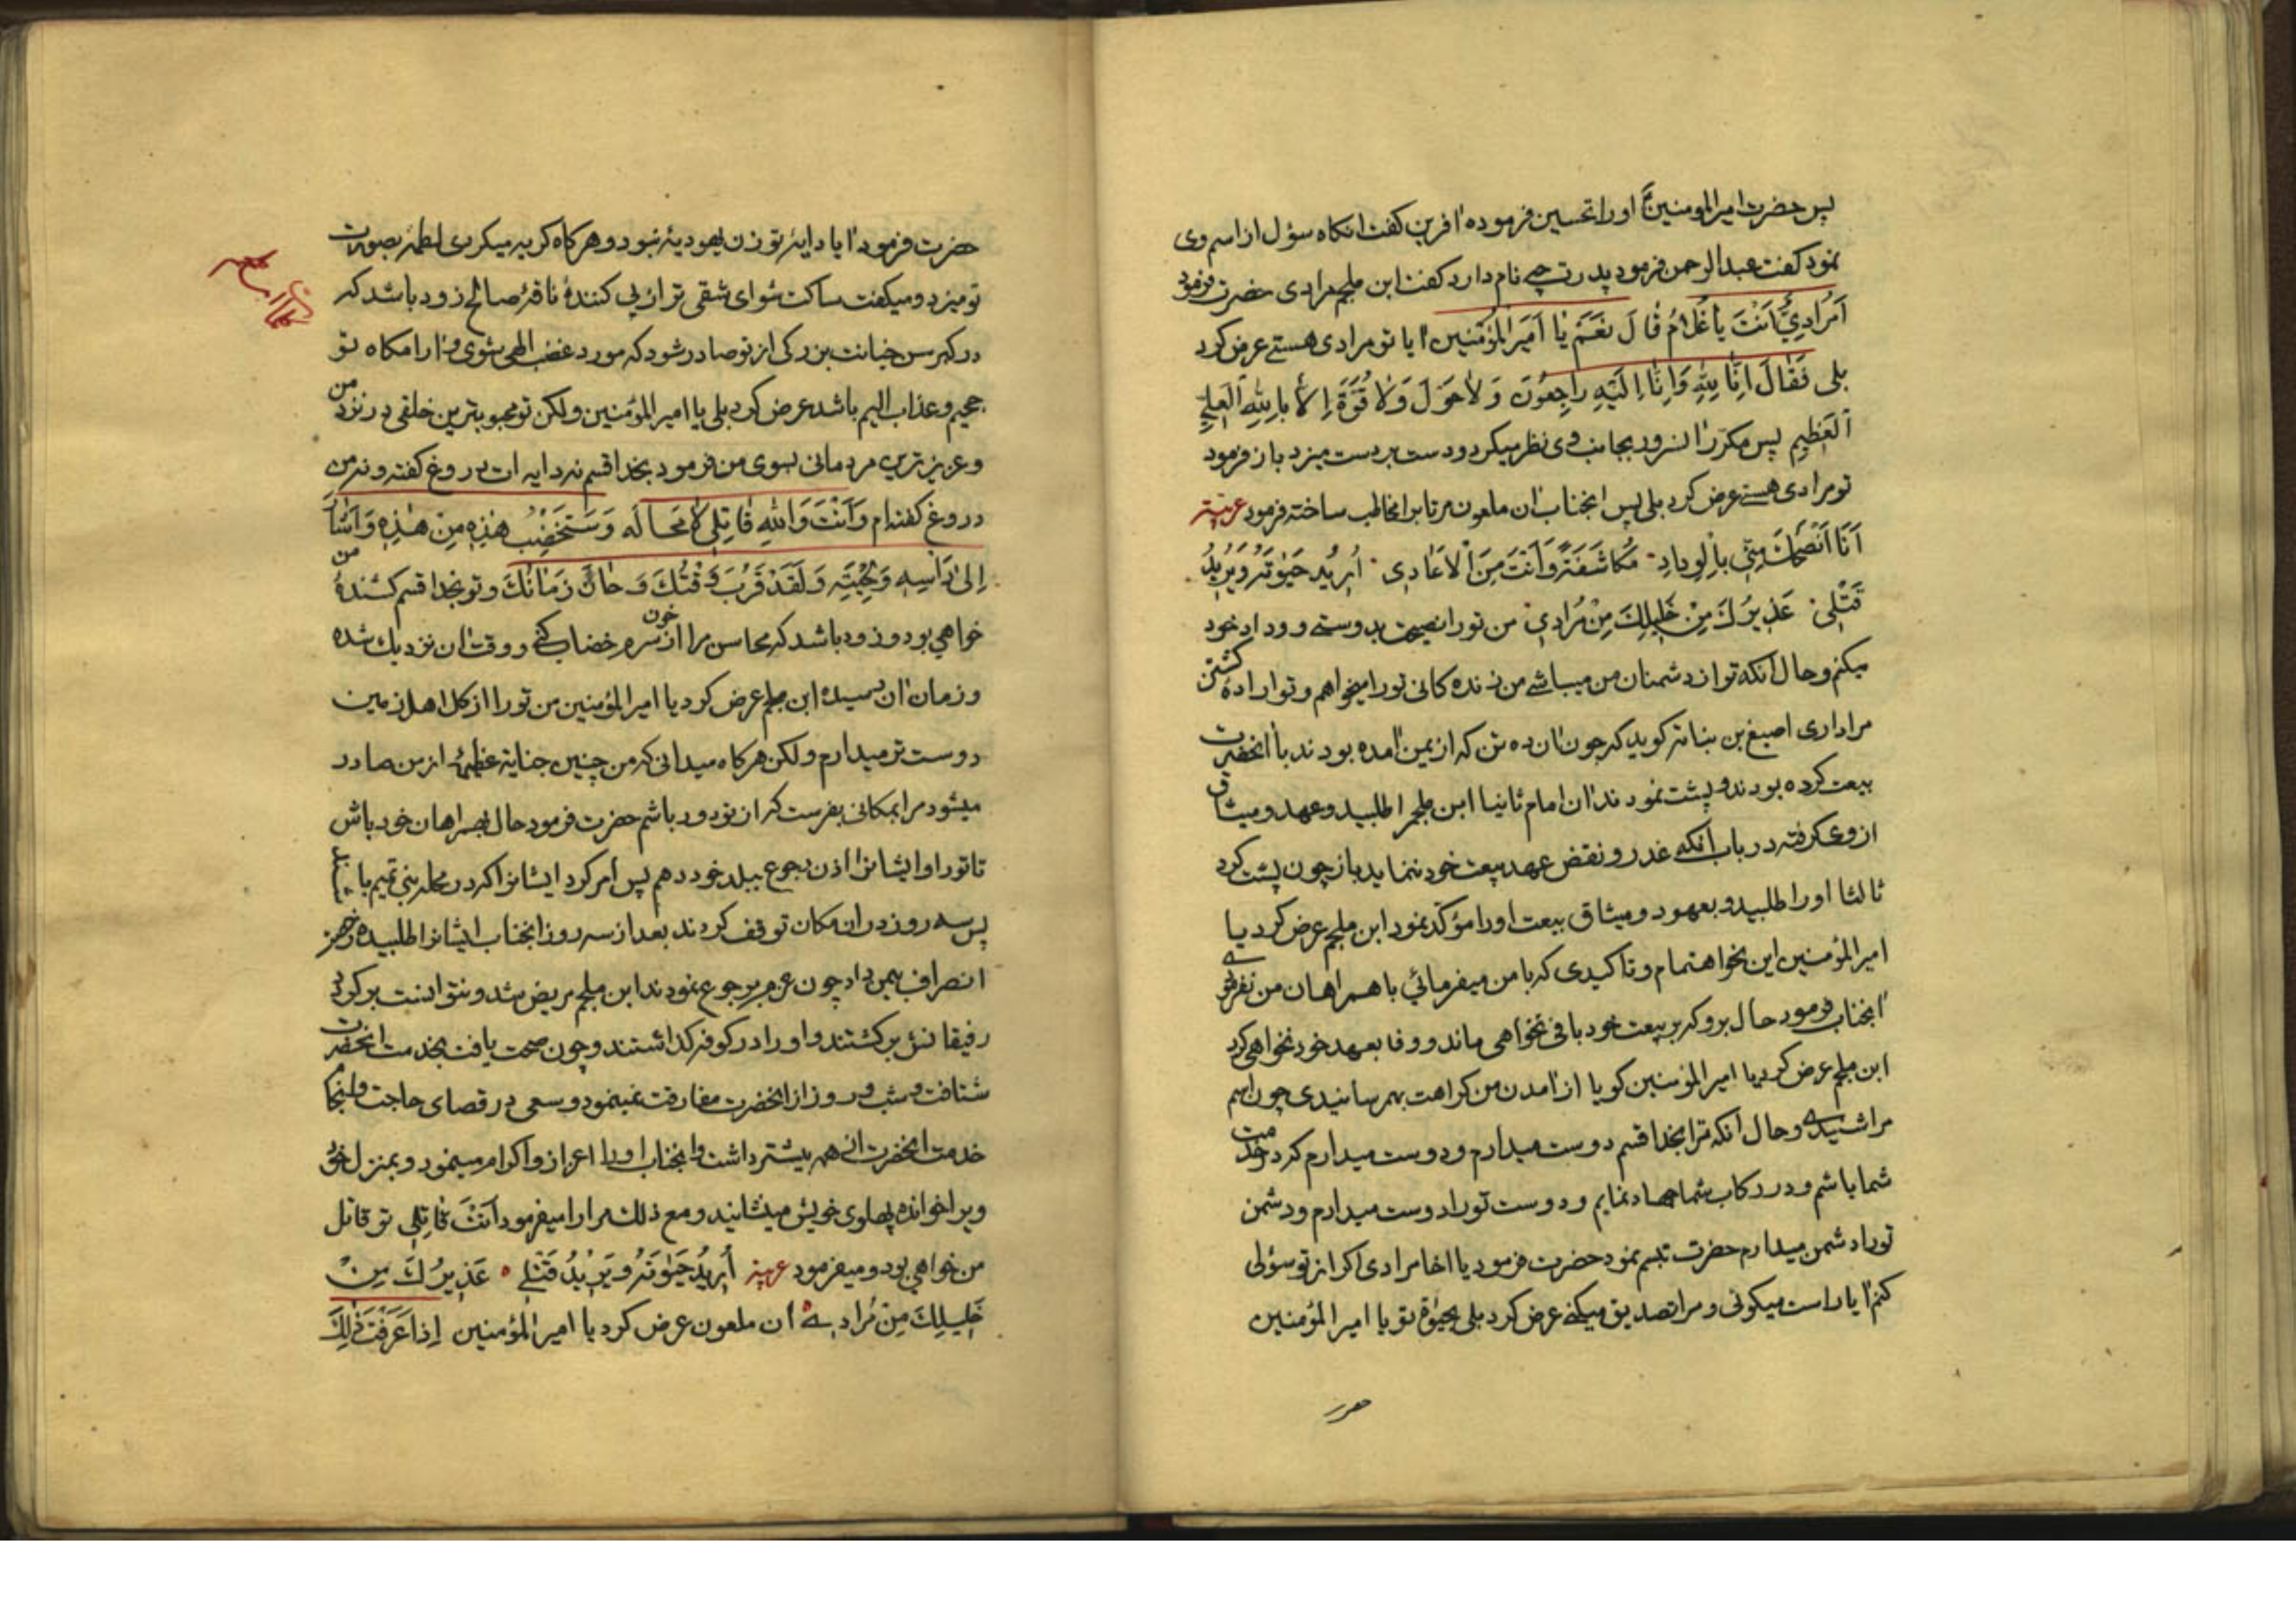 پس حضرت امیر المومنین اورا تحسین فرموده افرین کفت انکاه سؤل از اسم وی
نمود کفت عبد الرحمن فرمود پدرت چه نام دارد کفت ابن ملجم مرادی حضرت فرمود
اَمُرادِیٌّ اَنْتَ یا غُلامُ قالَ نَعَمْ یا اَمیرَ المُؤْمِنینَ ایا تو مرادی هستے عرض کرد
بلی فَقالَ اِنّا لِلّهِ وَاِنّا اِلَیْهِ راجِعُونَ وَلا حَوْلَ وَلا قُوَّةَ اِلاّ بِاللهِ العَلِیِّ
الْعَظیمِ پس مکرّر انسرور بجانب وی نظر میکرد و دست بر دست میزد باز فرمود
تو مرادی هستے عرض کرد بلی پس انجناب ان ملعون مرتاب را مخاطب ساخته فرمود عربیّة
اَنَا اَنْصَحُكَ مِنّی بِالْوِدادِ مُکاشَفَةً وَاَنْتَ مِنَ الْاَعادی اُریدُ حَیٰوتَهُ وَیُریدُ
قَتْلی عَذیرُكَ مِنْ خَلیلِكَ مِنْ مُرادی من تورا نصیحت بدوستے و وداد خود
میکنم و حال انکه تو از دشمنان من میباشے من زنده کانی تورا میخواهم و تو ارادهٔ کشتن
مرا داری اصبغ بن بناته کوید که چون ان ده تن که از یمن امده بودند با انحضرت
بیعت کرده بودند و پشت نمودند ان امام ثانیا ابن ملجم را طلبید و عهد و میثاق
از وی کرفته در باب انکه غدر و نقض عهد بیعت خود ننماید باز چون پشت کرد
ثالثا اورا طلبید و بعهود و میثاق بیعت اورا مؤکّد نمود ابن ملجم عرض کرد یا
امیر المؤمنین این نحو اهتمام و تاکیدی که با من میفرمائی با همراهان من نفرمودی
انجناب فرمود حال برو که بر بیعت خود باقی نخواهی ماند و وفا بعهد خود نخواهی کرد
ابن ملجم عرض کرد یا امیر المؤمنین کویا از امدن من کراهت بهم رسانیدی چون اسم
مرا شنیدے و حال انکه ترا بخدا قسم دوست میدارم و دوست میدارم که در خدمت
شما باشم و در رکاب شما جهاد نمایم و دوست تورا دوست میدارم و دشمن
تورا دشمن میدارم حضرت تبسم نمود حضرت فرمود یا اخا مرادی اکر از تو سؤلی
کنم ایا راست میکوئی و مرا تصدیق میکنے عرض کرد بلی بحیٰوة تو یا امیر المؤمنین
حضرت فرمود ایا دایهٔ تو زن یهودیهٔ نبود و هر کاه کریه میکردی لطمه بصورت
تو میزد و میکفت ساکت شو ای شقی تر از پی کنندهٔ ناقهٔ صالح زود باشد که
در کبر سن خیانت بزرکی از تو صادر شود که مورد غضب الهی شوی و ارامکاه تو
جحیم و عذاب الیم باشد عرض کرد بلی یا امیر المؤمنین ولکن تو محبوبترین خلقی در نزد من
و عزیزترین مردمانی بسوی من فرمود بخدا قسم نه دایه ات دروغ کفته و نه من
دروغ کفته ام وَاَنْتَ وَاللهِ قاتِلی لا مَحالَةَ وَسَتَخْضِبُ هٰذِهِ مِنْ هٰذِهِ وَاَشارَ
اِلی رَاْسِهِ وَلِحْیَتِهِ وَلَقَدْ قَرُبَ وَقْتُكَ وَحانَ زَمانُكَ و تو بخدا قسم کشندهٔ من
خواهی بود و زود باشد که محاسن مرا از خون سرم خضاب کنے و وقت ان نزدیك شده
و زمان ان رسیده ابن ملجم عرض کرد یا امیر المؤمنین من تورا از کل اهل زمین
دوست تر میدارم ولکن هر کاه میدانی که من چنین جنایة عظیمهٔ از من صادر
میشود مرا بمکانی بفرست که از تو دور باشم حضرت فرمود حال بهمراهان خود باش
تا تورا و ایشانرا اذن رجوع ببلد خود دهم پس امر کرد ایشانرا که در محله بنی تمیم
پس سه روز در ان مکان توقف کردند بعد از سه روز انجناب ایشانرا طلبیده
انصراف یمن داد چون عزم رجوع نمودند ابن ملجم مریض شد و نتوانست برکردد
رفیقانش برکشتند و اورا در کوفه کذاشتند و چون صحت یافت بخدمت انحضرت
شتافت و شب و روز از انحضرت مفارقت نمینمود و سعی در قضای حاجت
خدمت انحضرت از همه بیشتر داشت و انجناب اورا اعزاز و اکرام مینمود و بمنزل خود
ویرا خوانده پهلوی خویش مینشانید و مع ذلك مرارا میفرمود اَنْتَ قاتِلی تو قاتل
من خواهی بود و میفرمود عربیة اُریدُ حَیٰوتَهُ وَیُریدُ قَتْلی عَذیرُكَ مِنْ
خَلیلِكَ مِنْ مُرادی ان ملعون عرض کرد یا امیر المؤمنین اِذا عَرَفْتَ ذٰلِكَ